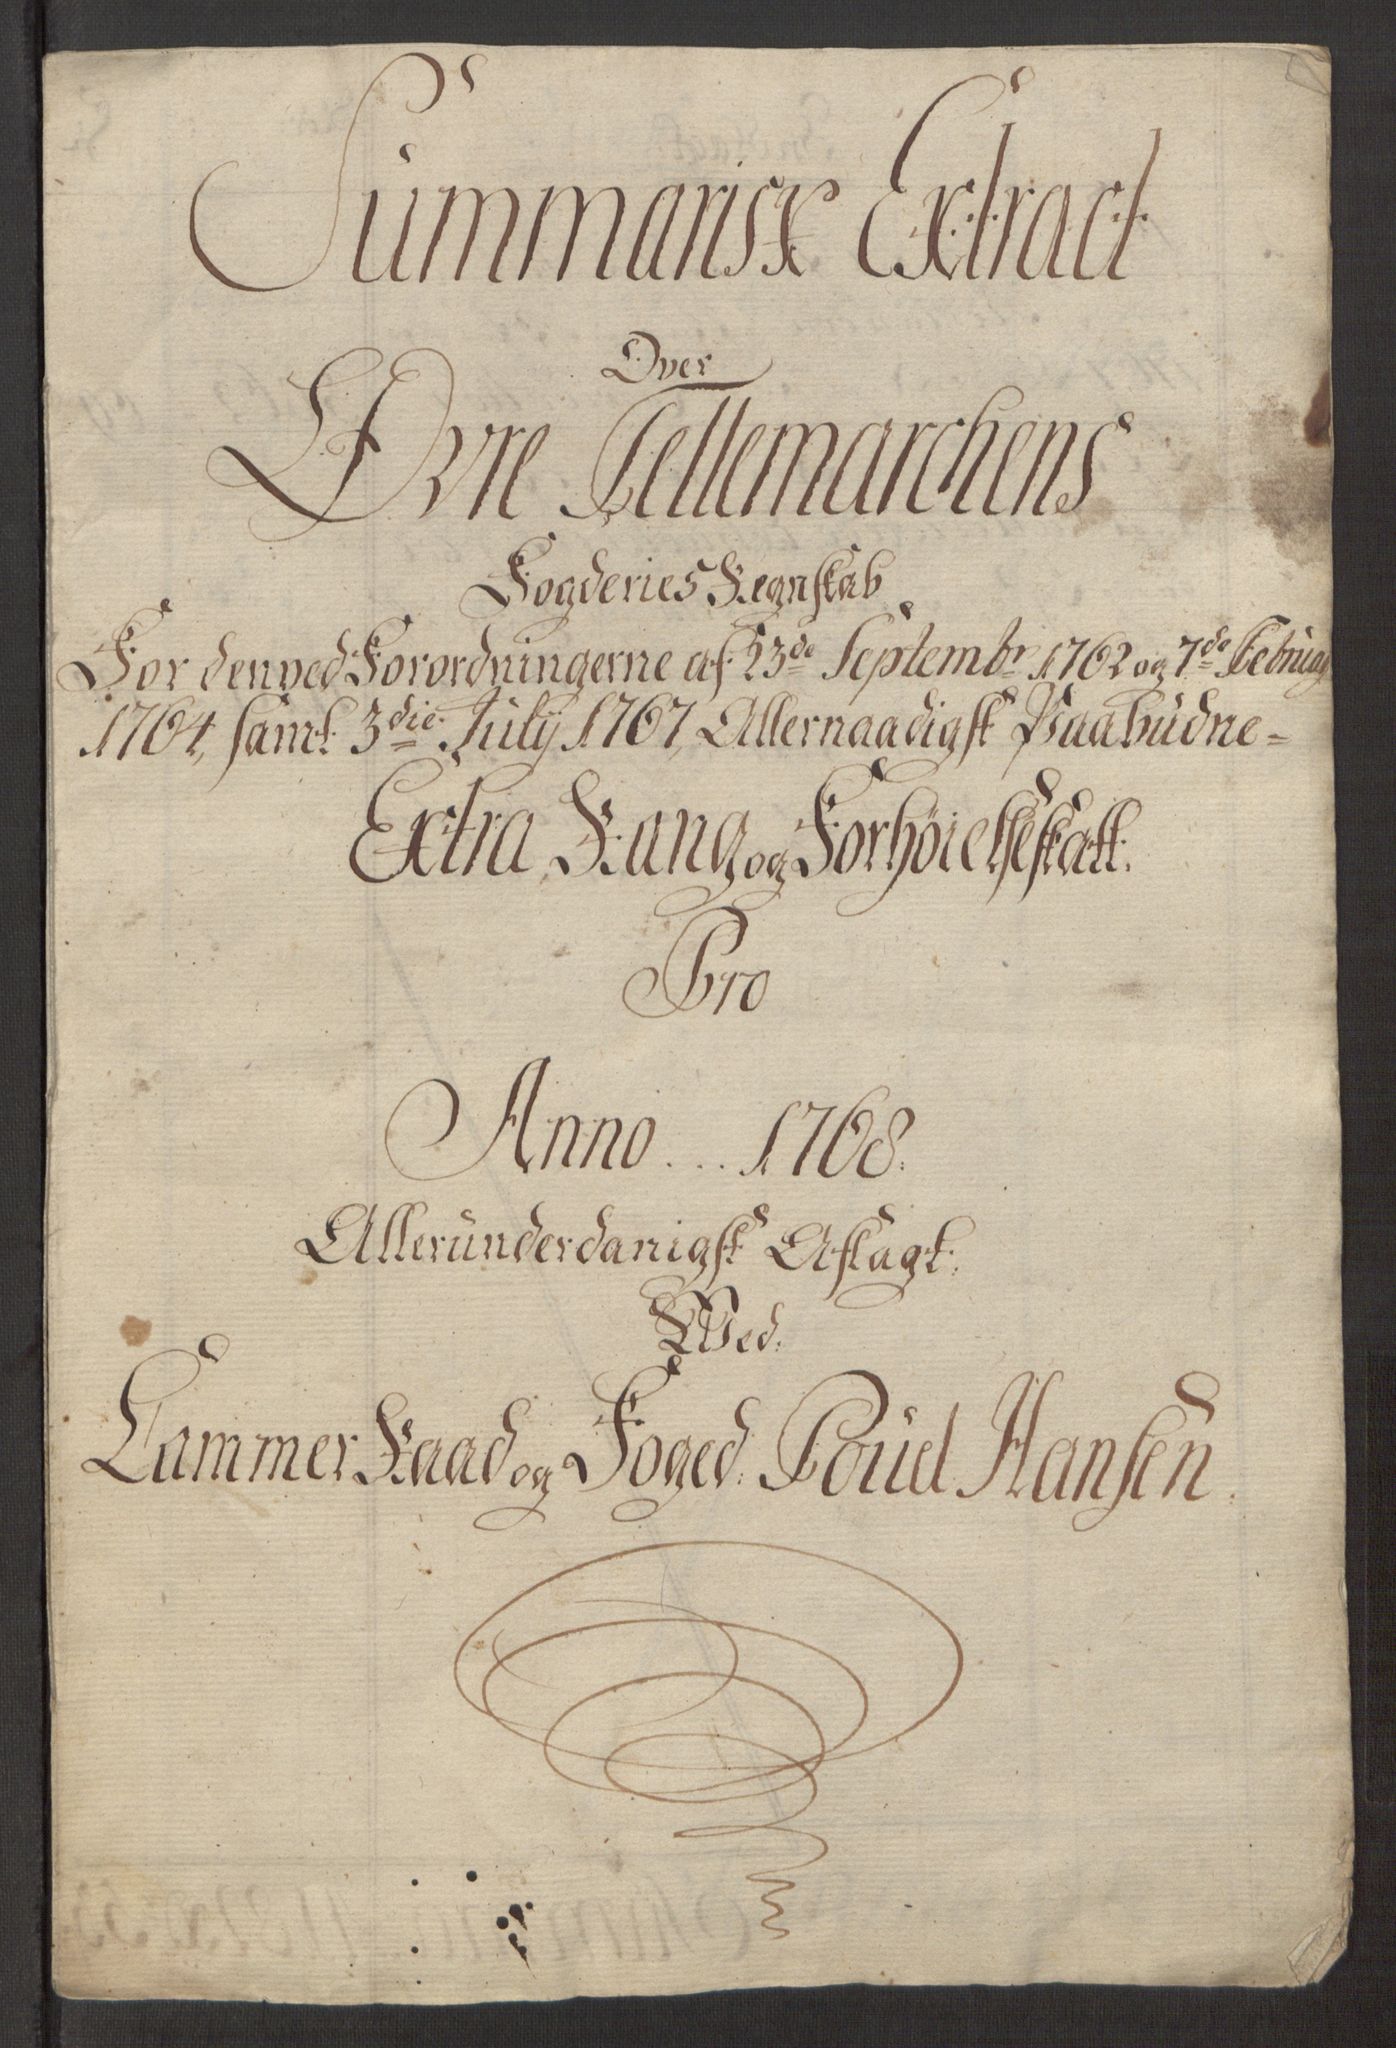 Summarisk Extract
Over
Øvre Tellemarchens
Fogderies Regnskab
For den ved Forordningerne af 23de Septembr 1762 og 7de Februarj
1764, samt 3die July 1767, Allernaadigst Paabudne=
Extra, Rang og Forhøielse skatt.
Pro
Anno . . . 1768.
Allerunderdanigst Aflagt.
Wed.
Cammer Raad og Foged. Poul Hansen.